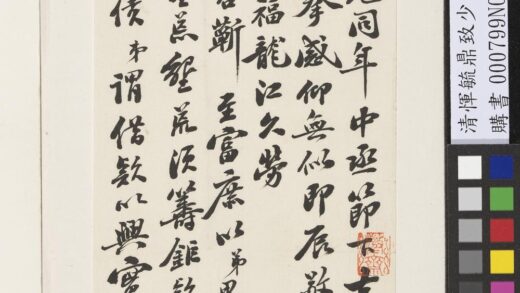 同年中丞節下
感仰無似即辰敬
福龍江久勞
蘄 至富庶以弟
荒墾荒須籌鉅款
債弟謂借款以興實
清惲毓鼎致少
購書 000799N